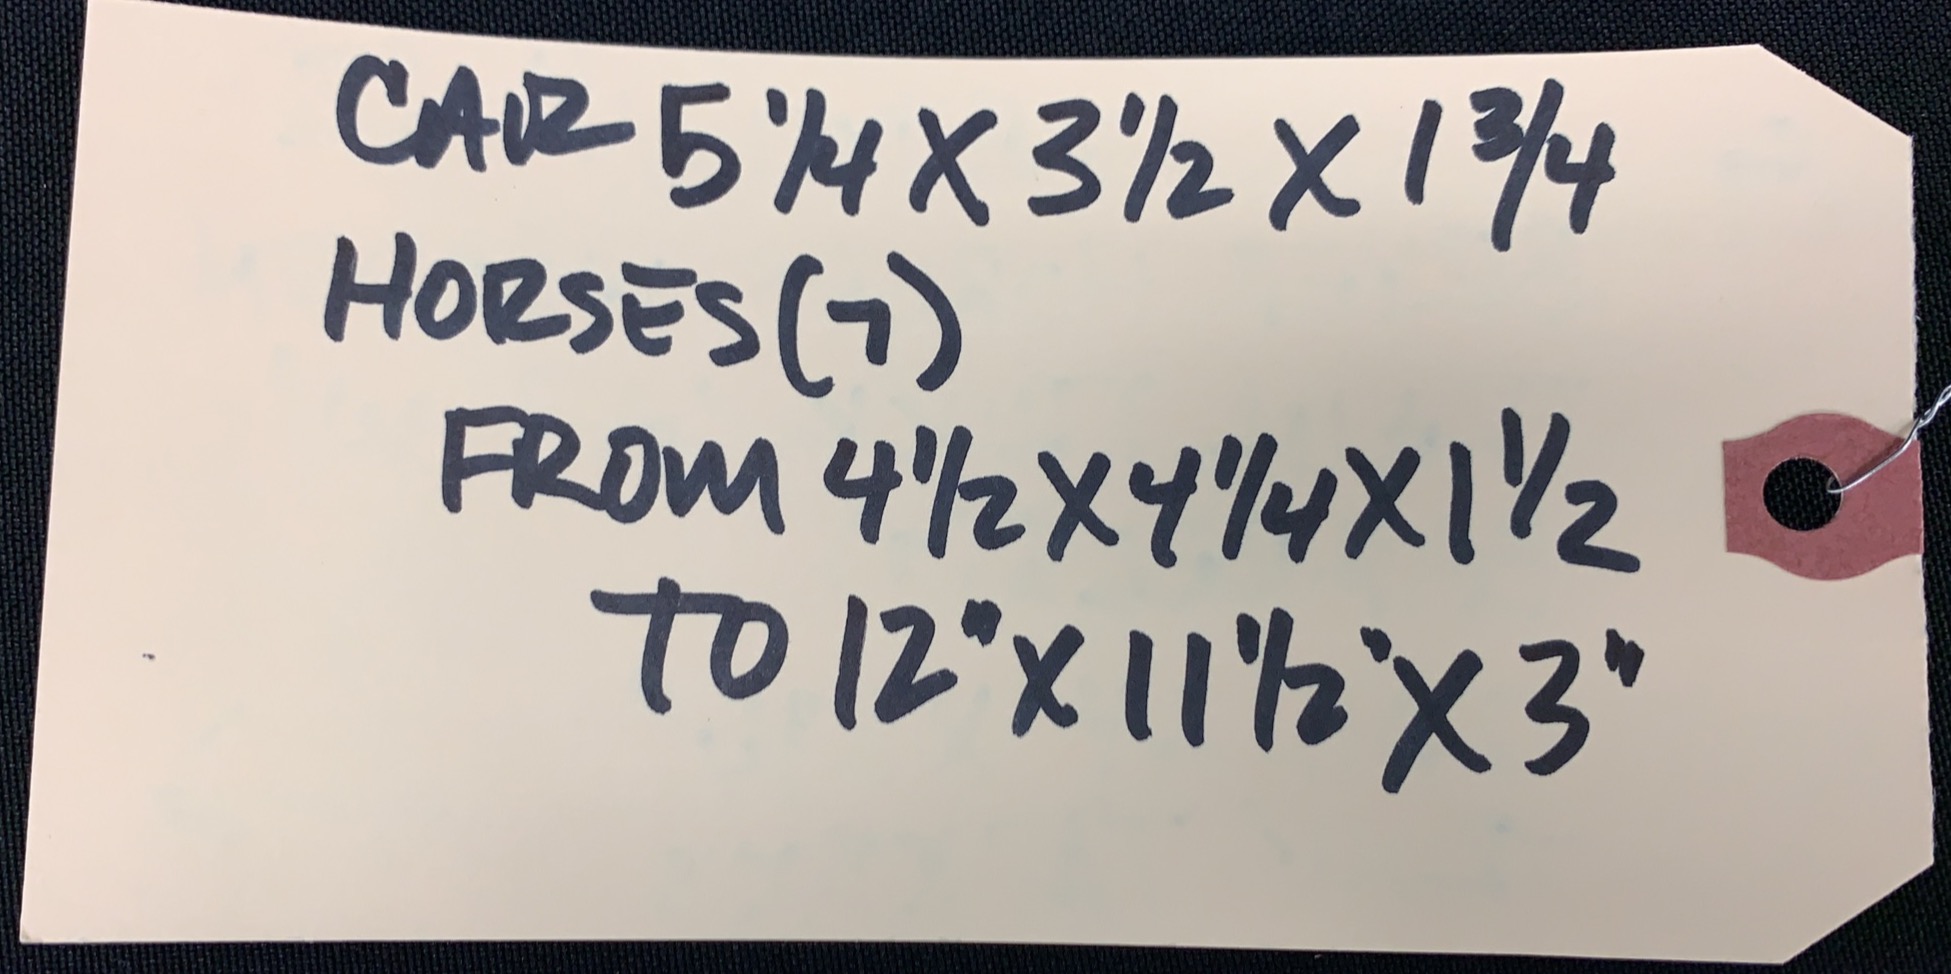 CAR 5 1/4 X 3 1/2 X 1 3/4
HORSES (7)
FROM 4 1/2 X 4 1/4 X 1 1/2
TO 12" X 11 1/2" X 3"